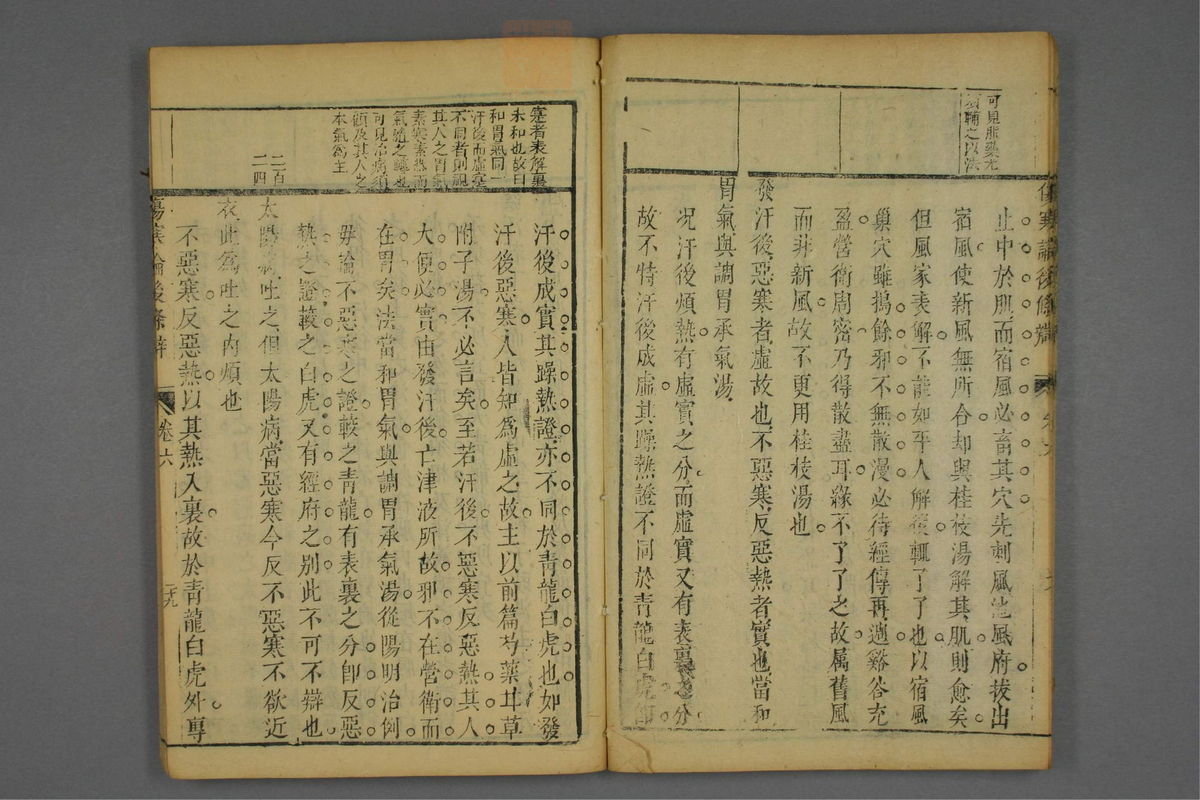 可見服藥尤
須輔之以法
傷寒論後條辯
止中於肌而宿風必畜其穴先刺風池風府拔出
宿風使新風無所合却與桂枝湯解其肌則愈矣
但風家表解不能如平人解後輒了了也以宿風
巢穴雖搗餘邪不無散漫必待經傳再過谿谷充
盈營衛周密乃得散盡耳緣不了了之故属舊風
而非新風故不更用桂枝湯也
發汗後惡寒者虛故也不惡寒反惡熱者實也當和
胃氣與調胃承氣湯
况汗後煩熱有虛實之分而虛實又有表裏之分
故不特汗後成虛其躁熱證不同於青龍白虎即
寔者表解裏
未和也故曰
和胃氣同一
汗後而虛寔
不同者則視
其人之胃氣
素寒素熱而
氣隨之轉也
可見治病須
顧及其人之
本氣爲主
二百
二四
汗後成實其躁熱證亦不同於青龍白虎也如發
汗後惡寒人皆知爲虛之故主以前篇芍藥甘草
附子湯不必言矣至若汗後不惡寒反惡熱其人
大便必實由發汗後亡津液所故邪不在營衛而
在胃矣法當和胃氣與調胃承氣湯從陽明治例
毋論不惡寒之證較之青龍有表裏之分卽反惡
熱之證較之白虎又有經府之别此不可不辯也
太陽病吐之但太陽病當惡寒今反不惡寒不欲近
衣此爲吐之內煩也
不惡寒反惡熱以其熱入裏故於青龍白虎外專
傷寒論後條辯
卷六